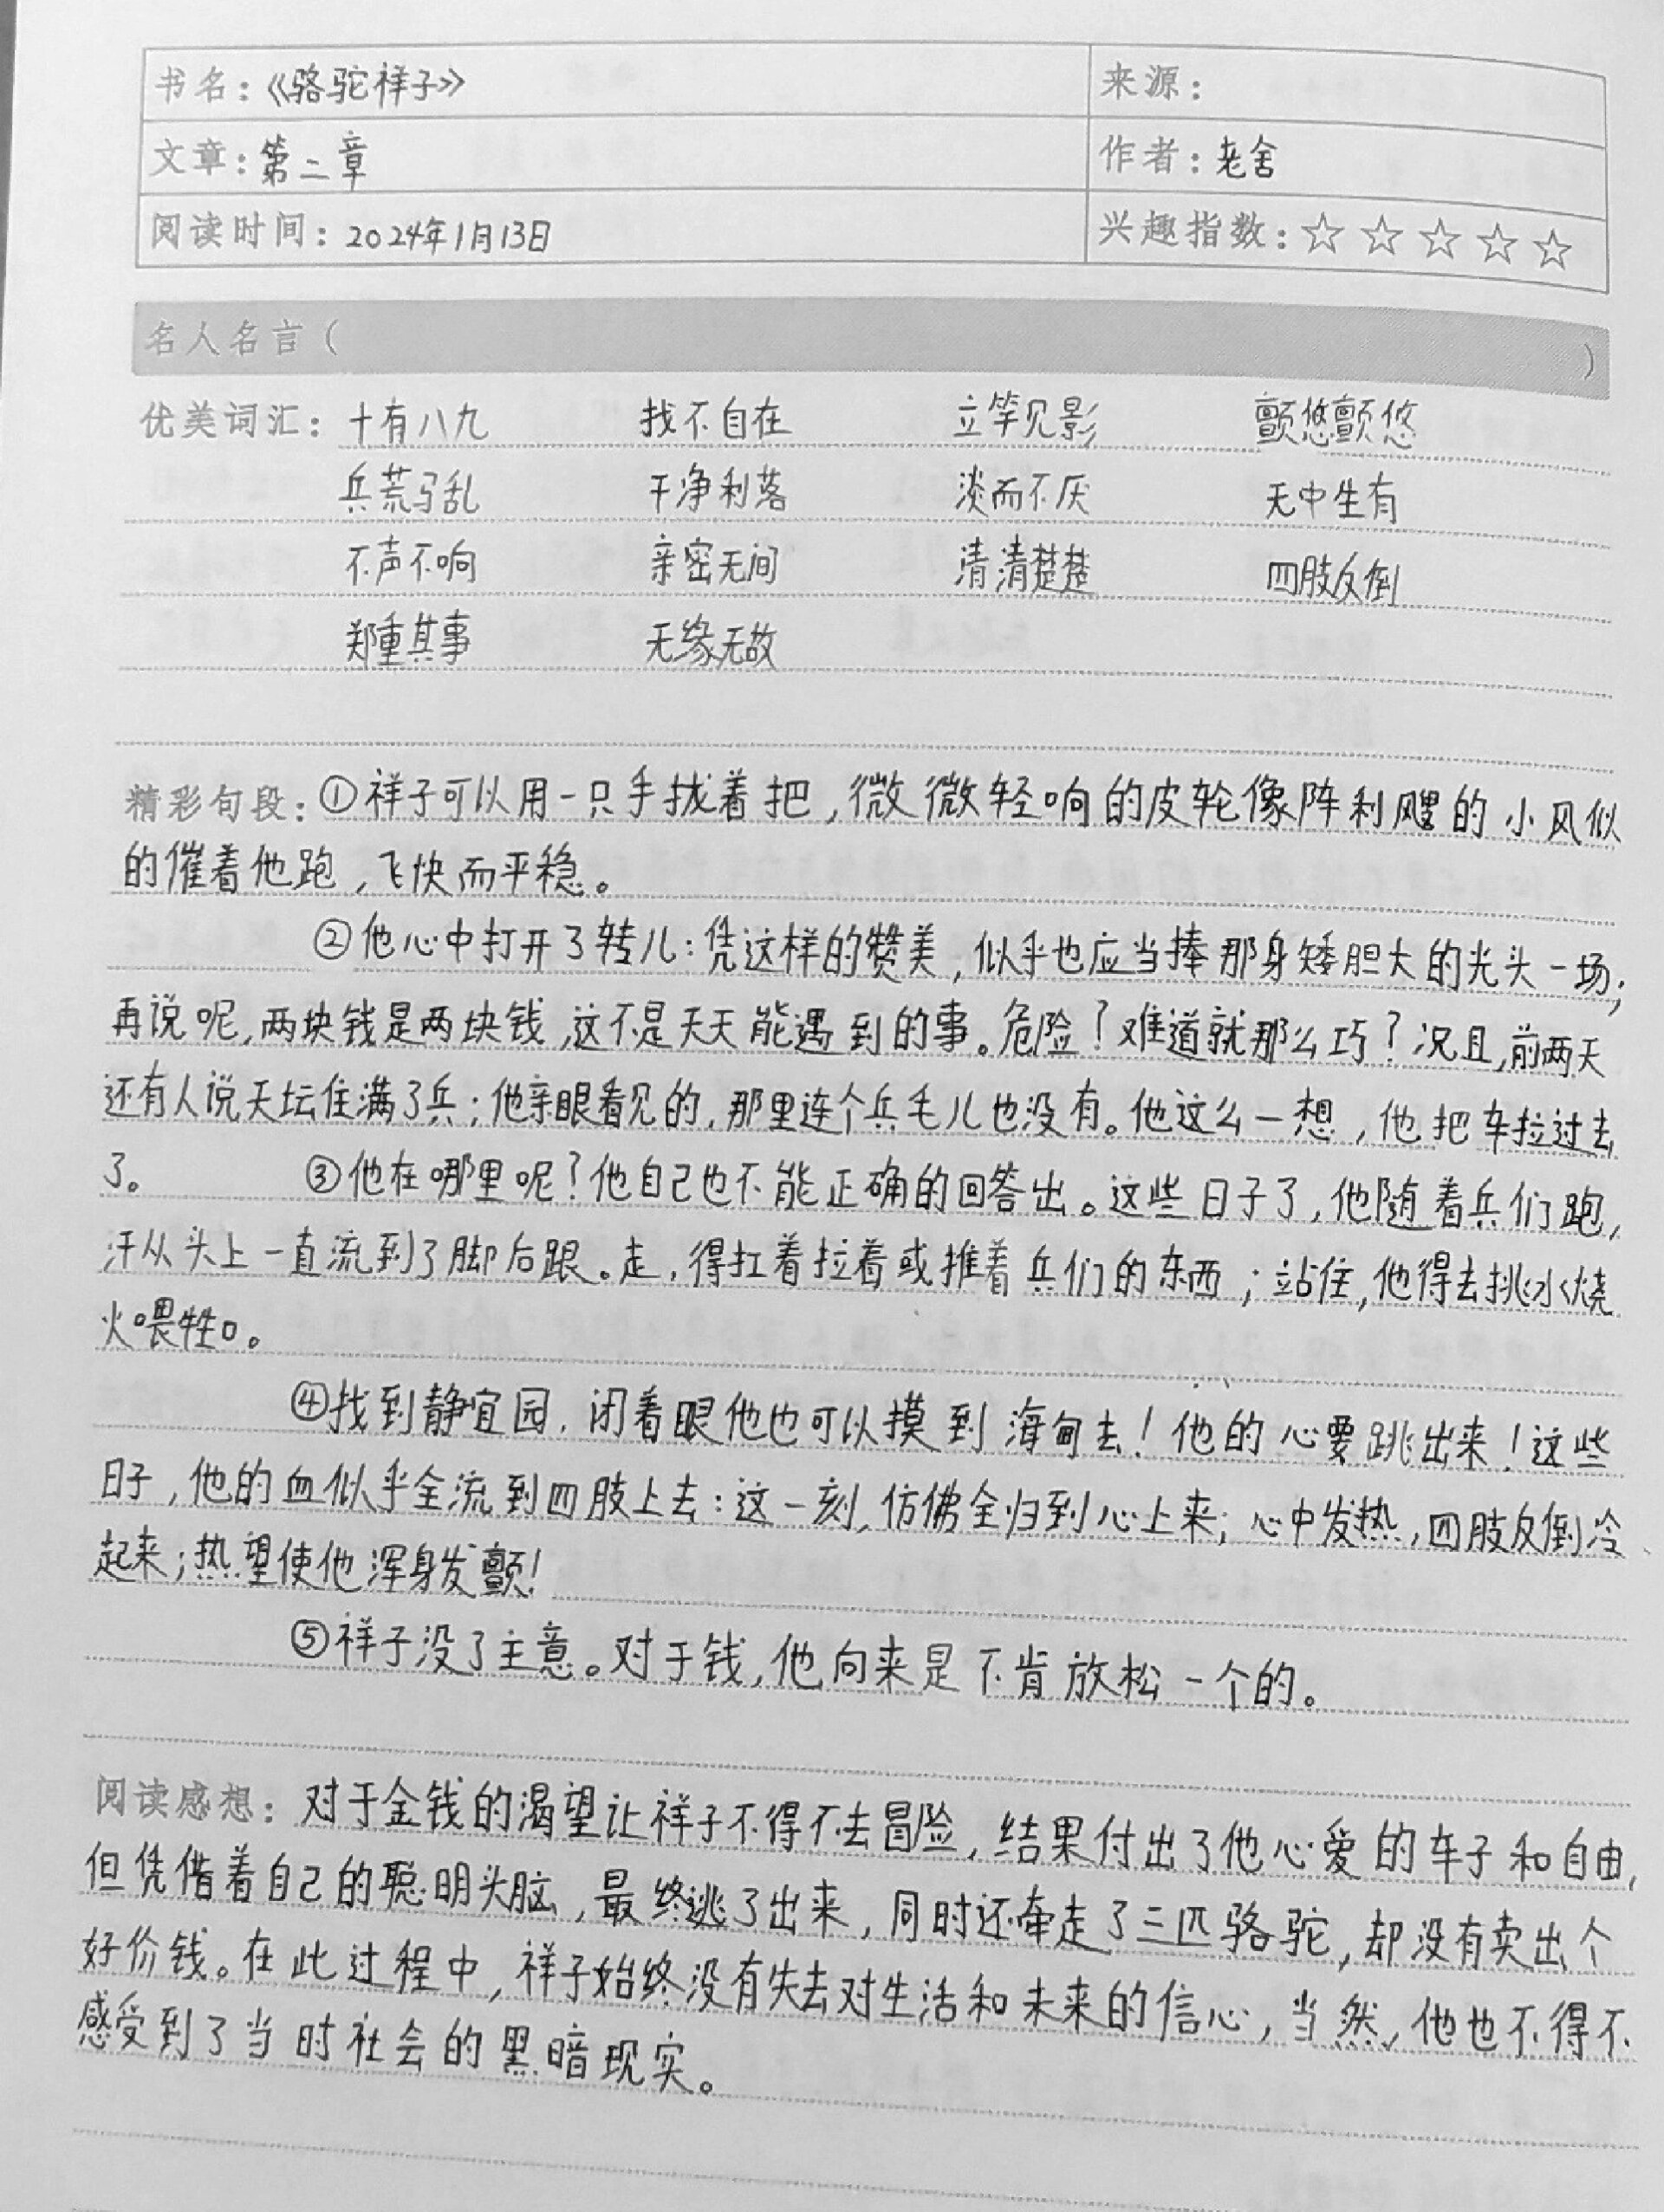 书名：《骆驼祥子》 来源：
文章：第二章 作者：老舍
阅读时间：2024年1月13日 兴趣指数：☆☆☆☆☆
名人名言（ ）
优美词汇：十有八九 找不自在 立竿见影 颤悠颤悠
兵荒马乱 干净利落 淡而不厌 无中生有
不声不响 亲密无间 清清楚楚 四肢反倒
郑重其事 无缘无故
精彩句段：①祥子可以用一只手拢着把，微微轻响的皮轮像阵利飕的小风似
的催着他跑，飞快而平稳。
②他心中打开了转儿：凭这样的赞美，似乎也应当捧那身矮胆大的光头一场；
再说呢，两块钱是两块钱，这不是天天能遇到的事。危险？难道就那么巧？况且，前两天
还有人说天坛住满了兵；他亲眼看见的，那里连个兵毛儿也没有。他这么一想，他把车拉过去
了。 ③他在哪里呢？他自己也不能正确的回答出。这些日子了，他随着兵们跑，
汗从头上一直流到了脚后跟。走，得扛着拉着或推着兵们的东西；站住，他得去挑水烧
火喂牲口。
④找到静宜园，闭着眼他也可以摸到海甸去！他的心要跳出来！这些
日子，他的血似乎全流到四肢上去：这一刻，仿佛全归到心上来；心中发热，四肢反倒冷
起来；热望使他浑身发颤！
⑤祥子没了主意。对于钱，他向来是不肯放松一个的。
阅读感想：对于金钱的渴望让祥子不得不去冒险，结果付出了他心爱的车子和自由，
但凭借着自己的聪明头脑，最终逃了出来，同时还牵走了三匹骆驼，却没有卖出个
好价钱。在此过程中，祥子始终没有失去对生活和未来的信心，当然，他也不得不
感受到了当时社会的黑暗现实。